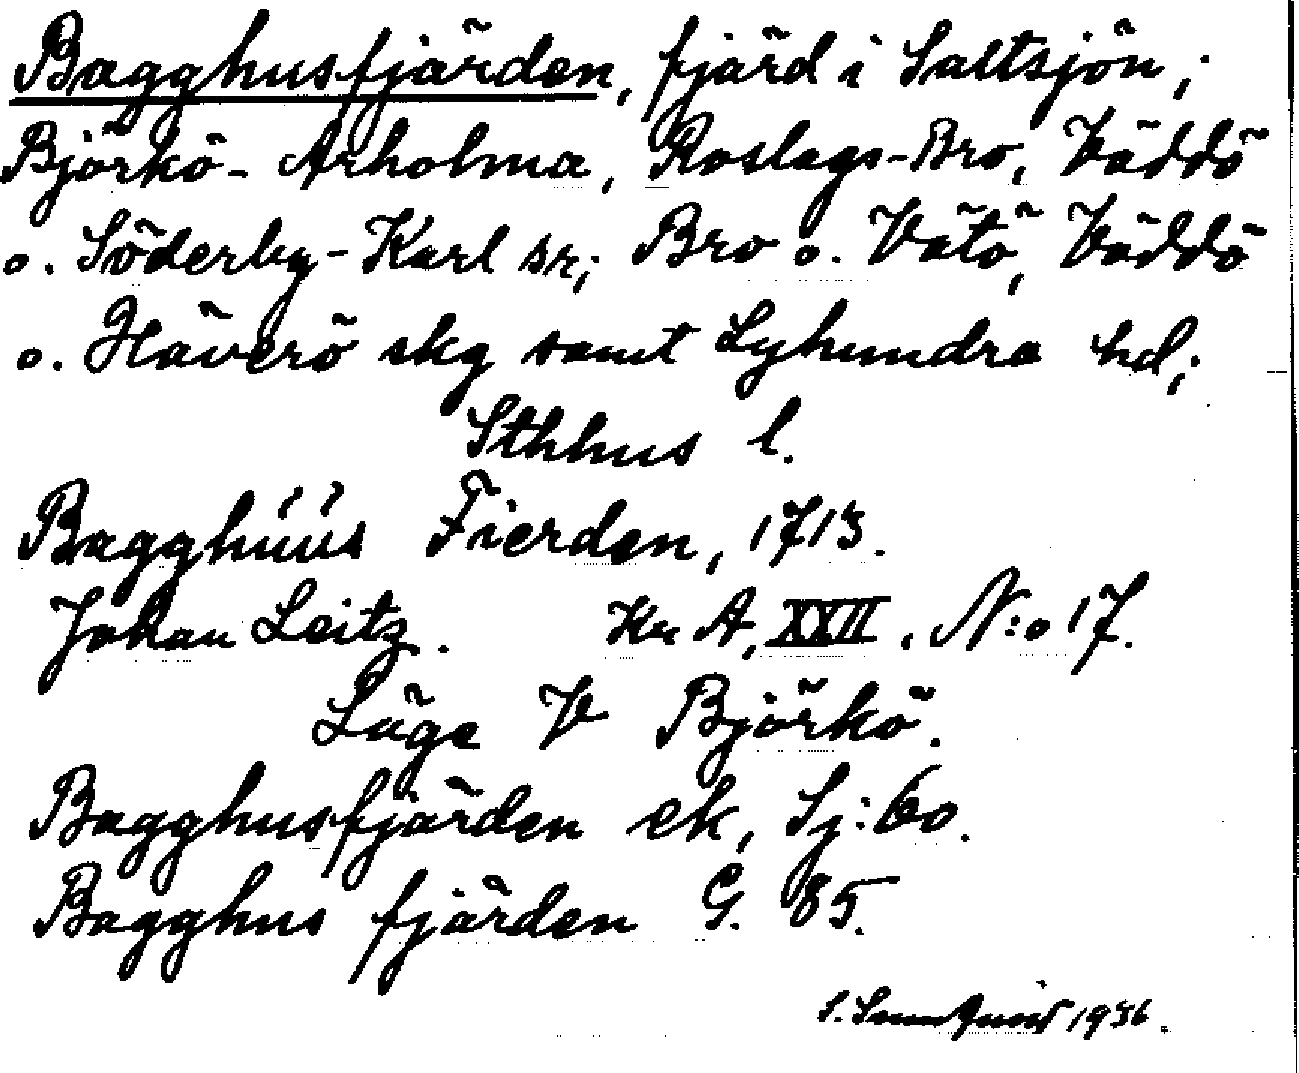 Bagghusfjärden, fjärd i Saltsjön;
Björkö-Arholma, Roslags-Bro, Väddö
o. Söderby-Karl sr; Bro o. Vätö, Väddö
o. Häverö skg samt Lyhundra hd;
Sthlms l.
Bagghúús Fierden, 1713.
Johan Leitz. Kr A, XXVII, N:o 17.
Läge V Björkö.
Bagghusfjärden ek, Sj:60.
Bagghus fjärden G. 85.
S. 1936.